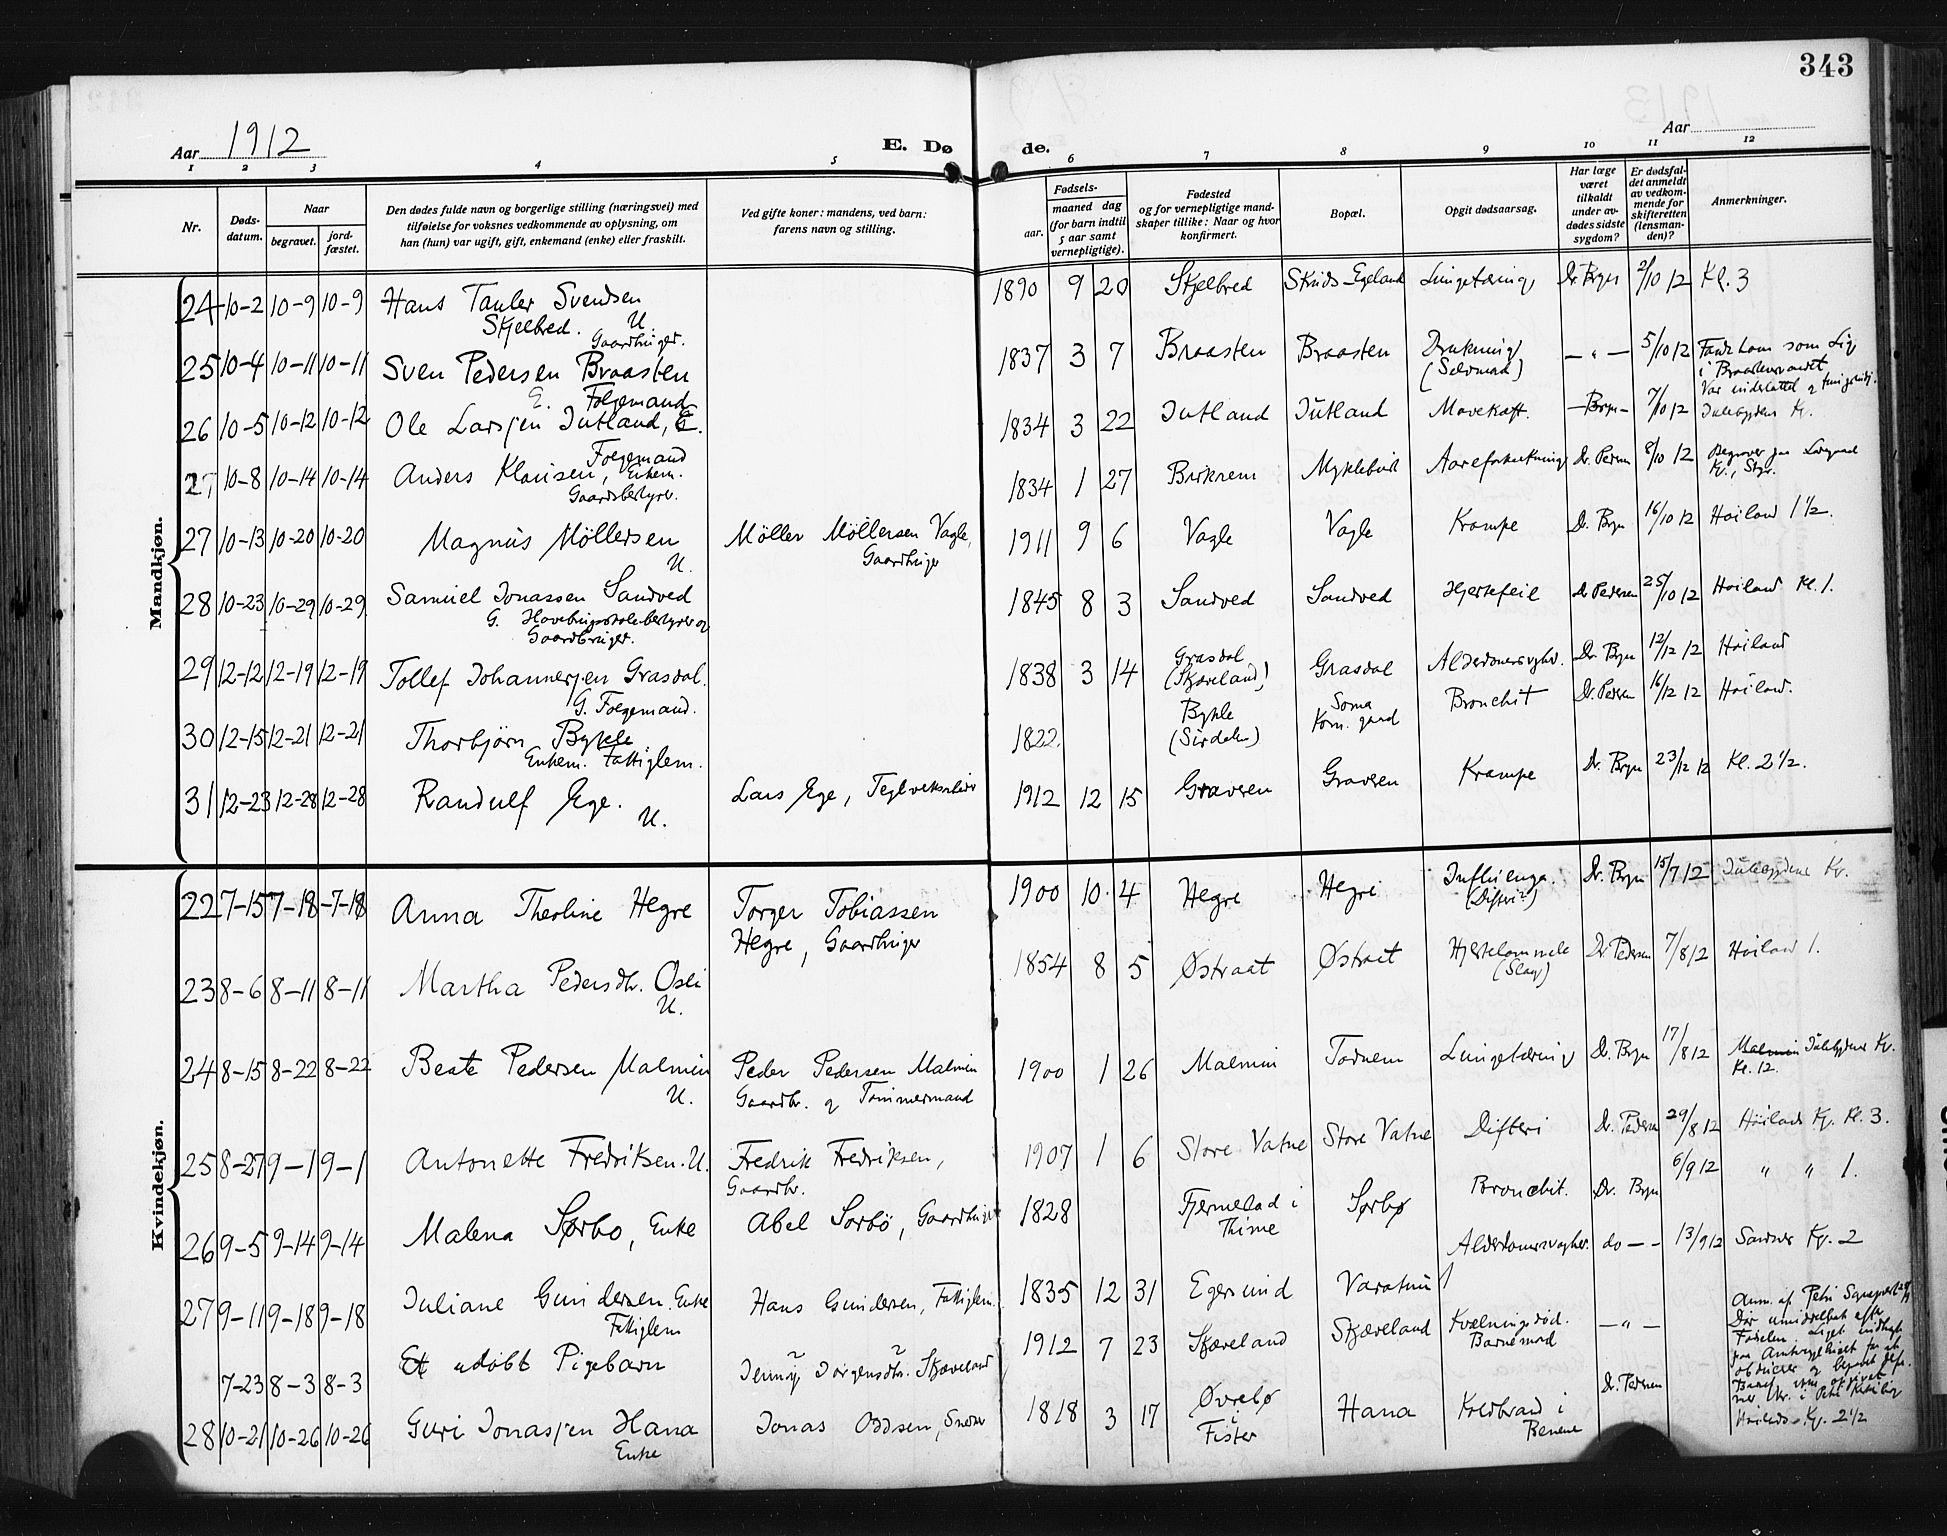 343
Aar 1912
E. Dø de.
Aar
1 2 3 4 5 6 7 8 9 10 11 12
Nr.
Døds-datum.
Naar
begravet.
jord-fæstet.
Den dødes fulde navn og borgerlige stilling (næringsvei) med
tilføielse for voksnes vedkommende av oplysning, om
han (hun) var ugift, gift, enkemand (enke) eller fraskilt.
Ved gifte koner: mandens, ved barn:
farens navn og stilling.
Fødsels-
aar.
maaned dag
(for barn indtil
5 aar samt
vernepligtige).
Fødested
og for vernepligtige mand-
skaper tillike: Naar og hvor
konfirmert.
Bopæl.
Opgit dødsaarsag.
Har læge
været
tilkaldt
under av-
dødes sidste
sygdom?
Er dødsfal-
det anmeldt
av vedkom-
mende for
skifteretten
(lensman-
den)?
Anmerkninger.
Mandkjøn.
24 10-2 10-9 10-9 Hans Tauler Svendsen 1890 9 20 Skjelbred Skuds-Egeland Lungetæring Dr. Bryn 2/10 12 Kl. 3
Skjelbred. U
Gaardbruger.
25 10-4 10-11 10-11 Sven Pedersen Braasten 1837 3 7 Braasten Braasten Drukning (Selvmord) — " — 5/10 12 som Lig
i Braastenvandet
E. Folgemand
26 10-5 10-12 10-12 Ole Larsen Jutland, E. 1834 3 22 Jutland Jutland Mavekræft. — Bryn — 7/10 12 Julebygdens K.
Folgemand
27 10-8 10-14 10-14 Anders Klausen, Enkem. 1834 1 27 Birkrem Aareforkalkning Dr. Pedersen 8/10 12
Gaardsbestyrer.
27 10-13 10-20 10-20 Magnus Möllersen Möller Möllersen Vagle, 1911 9 6 Vagle Vagle Krampe Dr. Bryn 16/10 12 Høiland 1 1/2.
U. Gaardbruger
28 10-23 10-29 10-29 Samuel Jonassen Sandved 1845 8 3 Sandved Sandved Hjertefeil Dr Pedersen 25/10 12 Høiland Kl. 1.
G. Havebrugsskolebestyrer og
Gaardbruger.
29 12-12 12-19 12-19 Tollef Johannesen Grasdal. 1838 3 14 Grasdal (Skjæveland) Grasdal Alderdomssvaghed. Dr. Bryn 12/12 12 Høiland
G. Folgemand.
30 12-15 12-21 12-21 Thorbjørn Bykle 1822. Bykle (Sirdalen) Soma Kom. gaard Bronchit Dr. Pedersen 16/12 12 Høiland.
Enkem. Fattiglem.
31 12-23 12-28 12-28 Randulf Ege. Lars Ege, 1912 12 15 Graveren Graveren Krampe Dr. Bryn 23/12 12 Kl. 2 1/2.
U.
Kvindekjøn.
22 7-15 7-18 -7-18 Anna Theoline Hegre Torger Tobiassen 1900 10. 4 Hegre Hegre Influenza. (Difteri?) Dr. Bryn 15/7 12 Julebygdens K.
Hegre, Gaardbruger
23 8-6 8-11 8-11 Martha Pedersdtr. Osli 1854 8 5 Østraat Østraat Hjertelammelse (Slag) Dr. Pedersen 7/8 12 Høiland 1.
U.
24 8-15 8-22 8-22 Beate Pedersen Malmin Peder Pedersen Malmin 1900 1 26 Malmin Lungetæring Dr. Bryn 17/8 12 Malmin Julebygdens K.
Kl. 12.
U. Gaardbr. og Tømmermand
25 8-27 9-1 9-1 Antonette Fredriksen. U. Fredrik Fredriksen, 1907 1 6 Store Vatne Store Vatne Difteri Dr. Pedersen 29/8 12 Høilands K. Kl. 3.
Gaardbr.
26 9-5 9-14 9-14 Malena Sørbo, Enke Abel Sorbö, Gaardbruger 1828 Fjermestad i Thime Sørbø Bronchit. Dr. Bryn 6/9 12 " " 1.
27 9-11 9-18 9-18 Juliane Gundersen. Enke Hans Gundersen, Fattiglem. 1835 12 31 Egersund Varatun Alderdomssvaghed. do — — 13/9 12 Sandnes K. 2
Fattiglem
7-23 8-3 8-3 Et udöbt Pigebarn Jenny Jörgensdtr. Skjæveland 1912 7 23 Skjæveland Skjæveland Kvælningsdød. Barnemord — " —
28 10-21 10-26 10-26 Guri Jonassen Hana Jonas Oddsen, 1818 3 17 Øvrebø i Fister Hana Koldbrand i Benene Dr. Pedersen Høilands K. 2 1/2
Enke